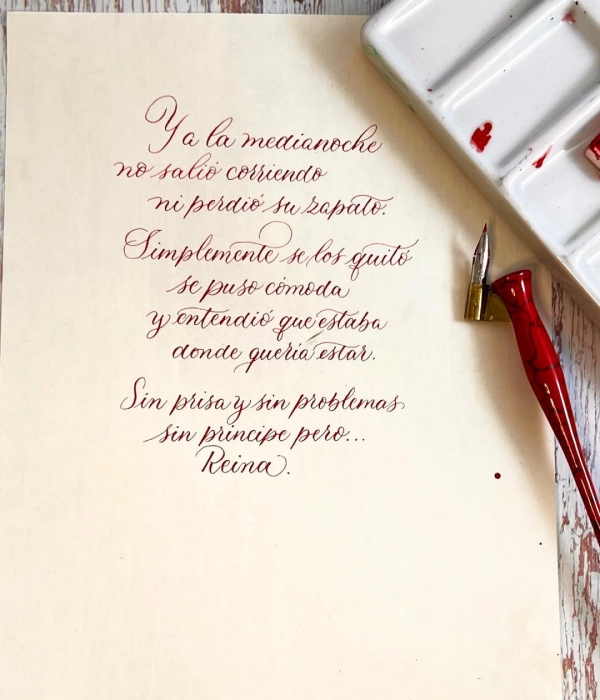 Ya la medianoche
no salió corriendo
ni perdió su zapato.
Simplemente se los quitó
se puso cómoda
y entendió que estaba
donde quería estar.
Sin prisa y sin problemas
sin príncipe pero...
Reina.